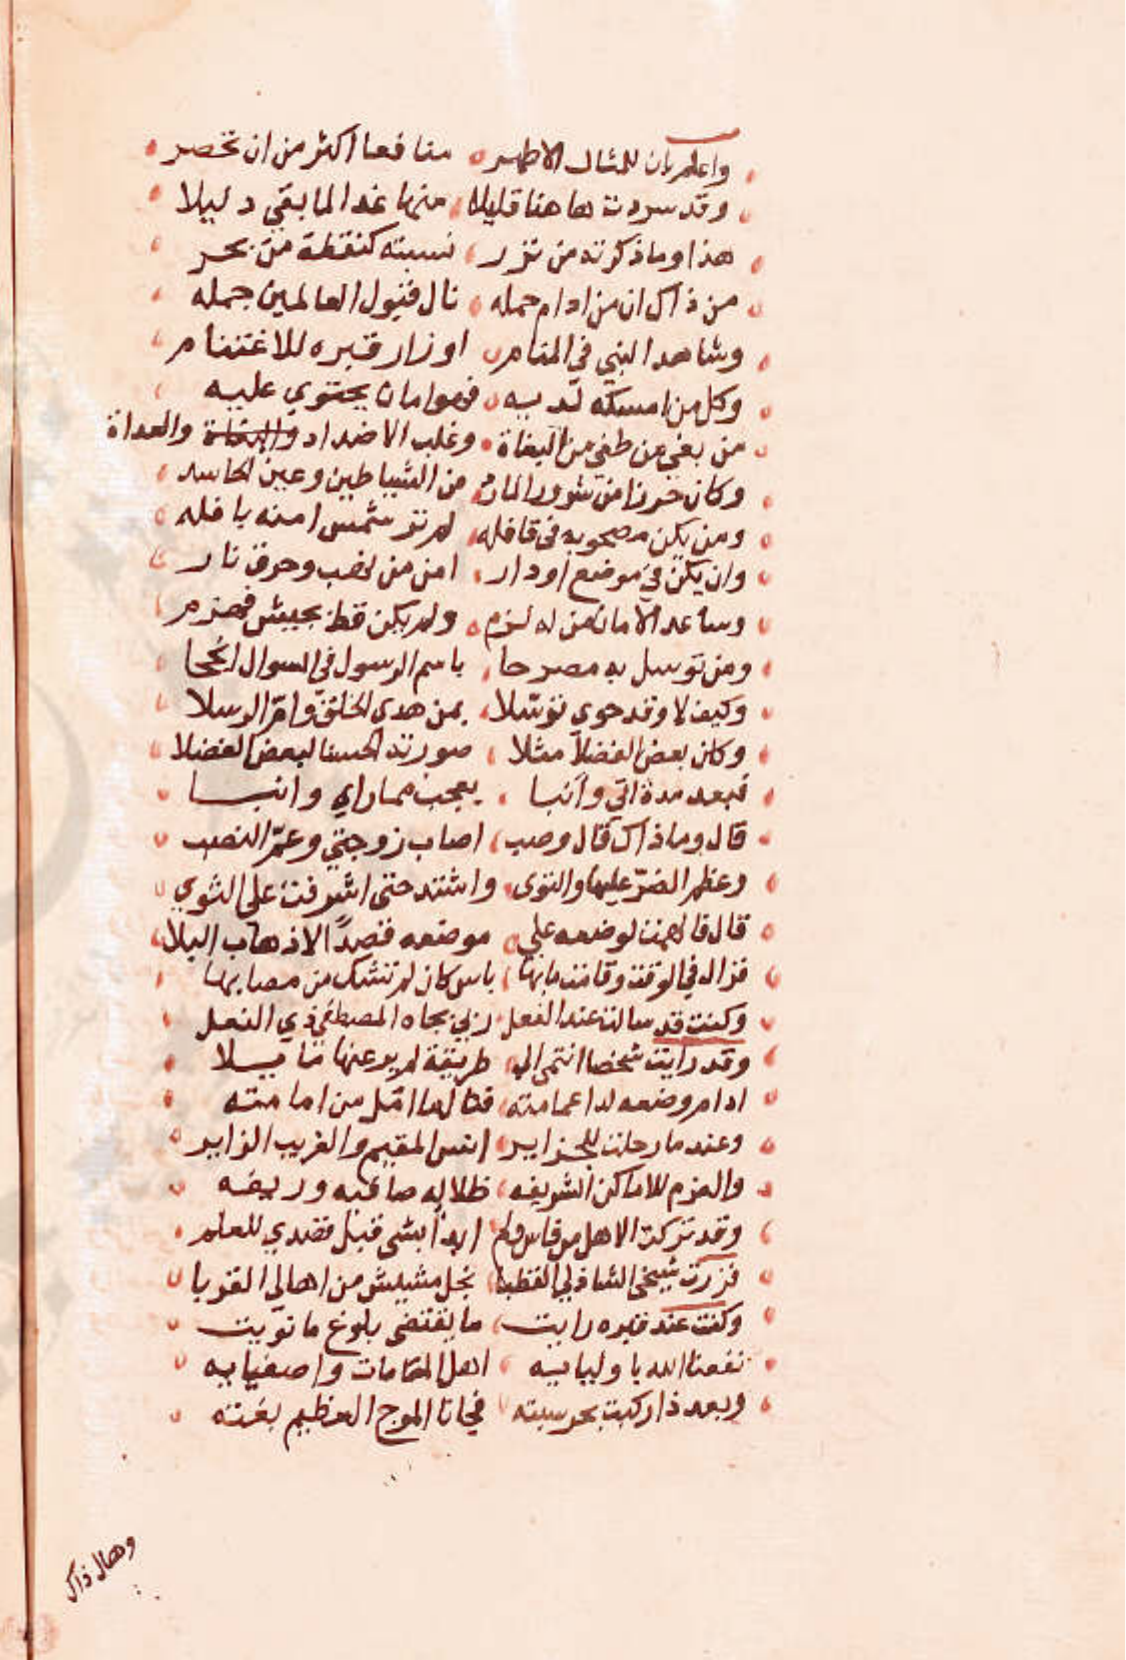 واعلم بان للمثال الاطهر منافعا اكثر من ان تحصر
وقد سردت هاهنا قليلا منها غدا لما بقي دليلا
هذا وما ذكرته من نزر نسبته كنقطة من بحر
من ذاك ان من ادام حمله نال قبول العالمين جمله
وشاهد النبي في المنام او زار قبره للاغتنام
وكل من امسكه لديه فهو امان يحتوي عليه
من بغي من طغي من البغاة وغلب الاضداد والعداة
وكان حرزا من شرور المارد من الشياطين وعين الحاسد
ومن يكن مصحوبه في قافله لم تر شمس امنه بافله
وان يكن في موضع او دار امن من نصب وحرق نار
وساعد الامان من له لزم ولم يكن قط بجيش فهزم
ومن توسل به مصرحا باسم الرسول في السوال انجحا
وكيف لا وقد حوي توسّلا بمن هدي الخلق وامّ الرسلا
وكان بعض الفضلا مثلا صورته الحسنا لبعض الفضلا
فبعد مدة اتي وانبا يعجب مما راي وانبا
قال وما ذاك قال وصب اصاب زوجتي وعمّ النصب
وعظم الضرّ عليها والتوى واشتد حتى اشرفت على الثوي
قال فالهمت لوضعه علي موضعه قصدًا لاذهاب البلا
فزال في الوقت وقامت مابها باس كان لم تشك من مصابها
وكنت قد سالت عند الفعل ربي بجاه المصطفي ذي النعل
وقد رايت شخصا انتمى الي طريقة لم يدعنها مايلا
ادام وضعه لدا عمامته فنالها اقل من امامته
وعند ما رحلت للجزاير انس المقيم والغريب الزاير
والعزم للاماكن الشريفه ظلاله ضافيه وريفه
وقد تركت الاهل من فاس ولم ابدا بشي قبل قصدي للعلم
فزرت شيخي الشاذلي القطبا نجل مشيش من اهالي القربا
وكنت عند قبره رايت ما يقتضي بلوغ ما نويت
نفعنا الله باوليايه اهل المقامات واصفيايه
وبعد ذا ركبت بحر سبته فجانا الموج العظيم بغته
وهال ذاك